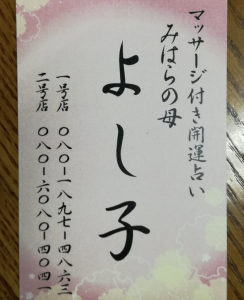 マッサージ付き開運占い
みはらの母
よし子
一号店 〇八〇-一八九七-四八六三
二号店 〇八〇-六〇八〇-四〇四一